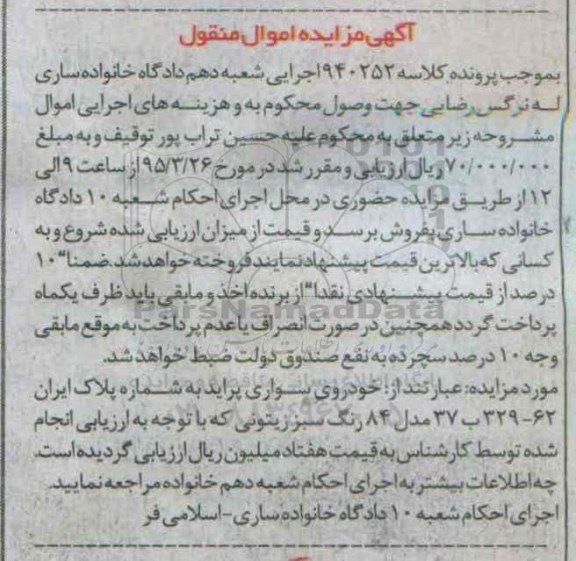 آگهی مزایده اموال منقول
بموجب پرونده کلاسه ۹۴۰۲۵۲ اجرایی شعبه دهم دادگاه خانواده ساری
له نرگس رضایی جهت وصول محکوم به و هزینه های اجرایی اموال
مشروحه زیر متعلق به محکوم علیه حسین تراب پور توقیف و به مبلغ
۷۰/۰۰۰/۰۰۰ ریال ارزیابی و مقرر شد در مورخ ۹۵/۳/۲۶ از ساعت ۹ الی
۱۲ از طریق مزایده حضوری در محل اجرای احکام شعبه ۱۰ دادگاه
خانواده ساری بفروش برسد و قیمت از میزان ارزیابی شده شروع و به
کسانی که بالاترین قیمت پیشنهاد نمایند فروخته خواهد شد. ضمنا" ۱۰
درصد از قیمت پیشنهادی نقدا" از برنده اخذ و مابقی باید ظرف یکماه
پرداخت گردد همچنین در صورت انصراف یا عدم پرداخت به موقع مابقی
وجه ۱۰ درصد سپرده به نفع صندوق دولت ضبط خواهد شد.
مورد مزایده: عبارتند از: خودروی سواری پراید به شماره پلاک ایران
۶۲-۳۲۹ ب ۳۷ مدل ۸۴ رنگ سبز زیتونی که با توجه به ارزیابی انجام
شده توسط کارشناس به قیمت هفتاد میلیون ریال ارزیابی گردیده است.
چه اطلاعات بیشتر به اجرای احکام شعبه دهم خانواده مراجعه نمایید.
اجرای احکام شعبه ۱۰ دادگاه خانواده ساری-اسلامی فر
ParsNamadData